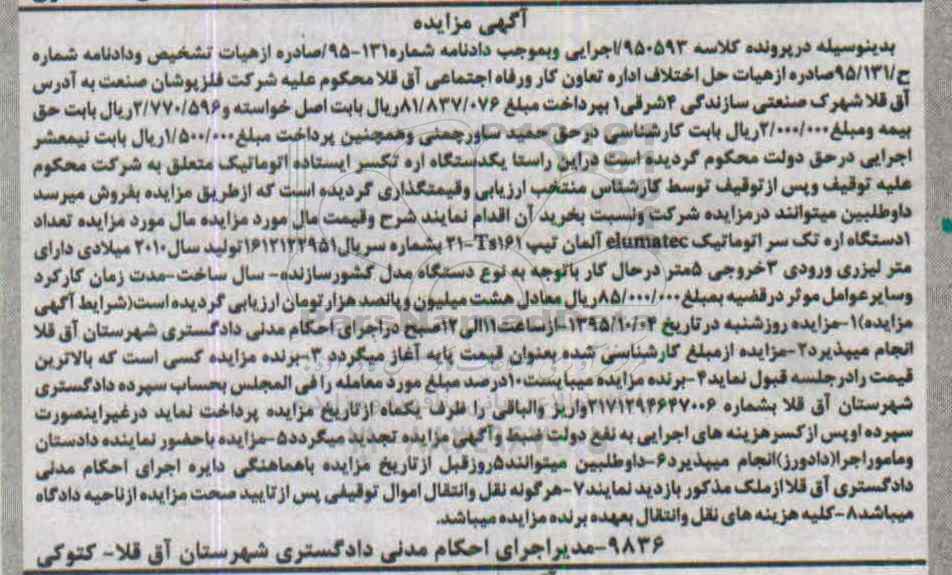 آگهی مزایده
بدینوسیله درپرونده کلاسه ۹۵۰۵۹۳/اجرایی وبموجب دادنامه شماره۱۳۱-۹۵/صادره ازهیات تشخیص ودادنامه شماره
ح/۹۵/۱۳۱صادره ازهیات حل اختلاف اداره تعاون کار ورفاه اجتماعی آق قلا محکوم علیه شرکت فلزپوشان صنعت به آدرس
آق قلا شهرک صنعتی سازندگی ۴شرقی۱ بپرداخت مبلغ ۸۱/۸۳۷/۰۷۶ریال بابت اصل خواسته و۲/۷۷۰/۵۹۶ریال بابت حق
بیمه ومبلغ۲/۰۰۰/۰۰۰ریال بابت کارشناسی درحق حمید ساورچمنی وهمچنین پرداخت مبلغ۱/۵۰۰/۰۰۰ریال بابت نیمعشر
اجرایی درحق دولت محکوم گردیده است دراین راستا یکدستگاه اره تکسر ایستاده اتوماتیک متعلق به شرکت محکوم
علیه توقیف وپس ازتوقیف توسط کارشناس منتخب ارزیابی وقیمتگذاری گردیده است که ازطریق مزایده بفروش میرسد
داوطلبین میتوانند درمزایده شرکت ونسبت بخرید آن اقدام نمایند شرح وقیمت مال مورد مزایده مال مورد مزایده تعداد
۱دستگاه اره تک سر اتوماتیک elumatec آلمان تیپ Ts۱۶۱-۲۱ بشماره سریال۱۶۱۲۱۲۲۹۵۱تولید سال۲۰۱۰ میلادی دارای
متر لیزری ورودی ۳خروجی ۵متر درحال کار باتوجه به نوع دستگاه مدل کشورسازنده- سال ساخت-مدت زمان کارکرد
وسایرعوامل موثر درقضیه بمبلغ۸۵/۰۰۰/۰۰۰ریال معادل هشت میلیون وپانصد هزارتومان ارزیابی گردیده است(شرایط آگهی
مزایده)۱-مزایده روزشنبه درتاریخ ۱۳۹۵/۱۰/۰۴-ازساعت۱۱الی۱۲صبح دراجرای احکام مدنی دادگستری شهرستان آق قلا
انجام میپذیرد۲-مزایده ازمبلغ کارشناسی شده بعنوان قیمت پایه آغاز میگردد ۳-برنده مزایده کسی است که بالاترین
قیمت رادرجلسه قبول نماید۴-برنده مزایده میبایست۱۰درصد مبلغ مورد معامله را فی المجلس بحساب سپرده دادگستری
شهرستان آق قلا بشماره ۲۱۷۱۲۹۴۶۴۷۰۰۶واریز والباقی را ظرف یکماه ازتاریخ مزایده پرداخت نماید درغیراینصورت
سپرده اوپس ازکسرهزینه های اجرایی به نفع دولت ضبط وآگهی مزایده تجدید میگردد۵-مزایده باحضور نماینده دادستان
وماموراجرا(دادورز)انجام میپذیرد۶-داوطلبین میتوانند۵روزقبل ازتاریخ مزایده باهماهنگی دایره اجرای احکام مدنی
دادگستری آق قلاازملک مذکور بازدید نمایند۷-هرگونه نقل وانتقال اموال توقیفی پس ازتایید صحت مزایده ازناحیه دادگاه
میباشد۸-کلیه هزینه های نقل وانتقال بعهده برنده مزایده میباشد.
۹۸۳۶-مدیراجرای احکام مدنی دادگستری شهرستان آق قلا- کتوکی